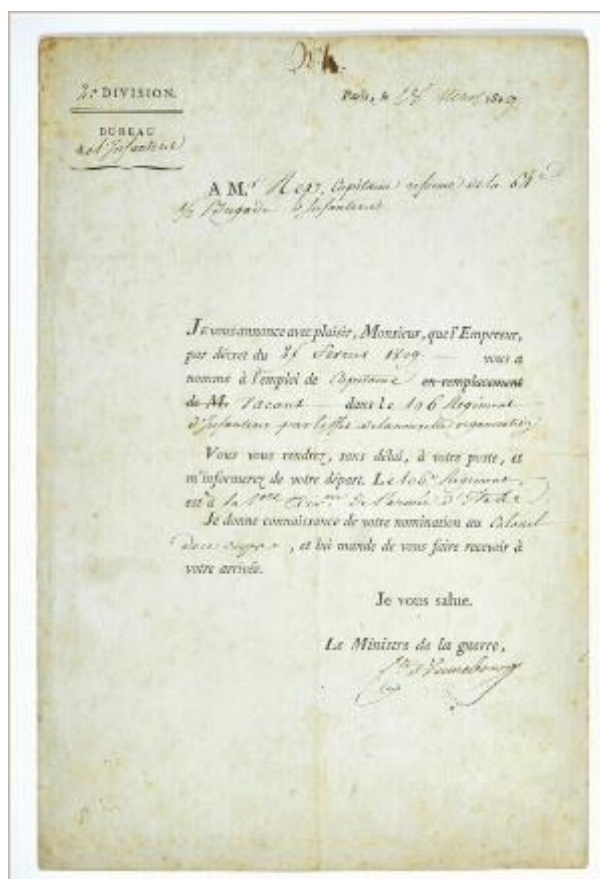 2e DIVISION.
BUREAU
de l'Infanterie
Paris, le Mars 1809
A M.r Capitaine réformé de la
1/2 Brigade d'Infanterie
Je vous annonce avec plaisir, Monsieur, que l'Empereur,
par décret du 25 Fevrier 1809 vous a
nommé à l'emploi de Capitaine en remplacement
de M. Vacant dans le 106 Regiment
d'Infanterie par l'effet de la nouvelle organisation
Vous vous rendrez, sans délai, à votre poste, et
m'informerez de votre départ. Le 106e Regiment
est à la 1ere Divon de l'armée d'Italie
Je donne connaissance de votre nomination au Colonel
de ce corps, et lui mande de vous faire recevoir à
votre arrivée.
Je vous salue.
Le Ministre de la guerre,
Cte d'Hunebourg